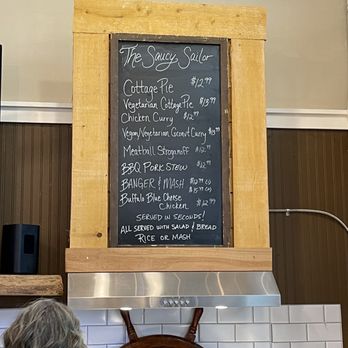 The Saucy Sailor
Cottage Pie $12.99
Vegetarian Cottage Pie $13.99
Chicken Curry $12.99
Vegan/Vegetarian Coconut Curry
Meatball Stroganoff $12.99
BBQ Pork Stew $12.99
Banger & Mash
Buffalo Blue Cheese
Chicken $12.99
Served in Seconds!
All served with Salad & Bread
Rice or Mash